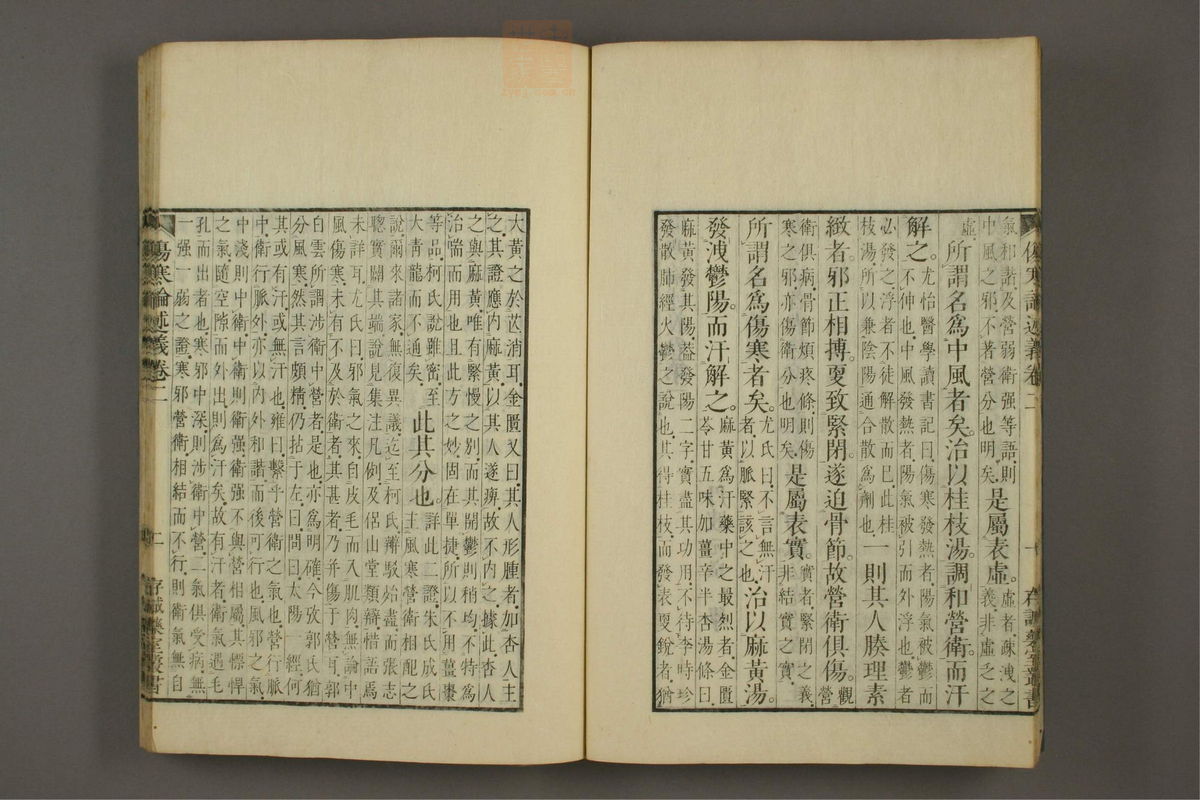 氣和諧及營弱衛强等語則
中風之邪不著營分也明矣
是屬表虛
虛者疎洩之
義非虛乏之
虛
所謂名爲中風者矣治以桂枝湯調和營衛而汗
解之
尤怡醫學讀書記曰傷寒發熱者陽氣被鬱而
不伸也中風發熱者陽氣被引而外浮也鬱者
必發之浮者不徒解散而已此桂
枝湯所以兼陰陽通合散爲劑也
一則其人腠理素
緻者邪正相搏更致緊閉遂迫骨節故營衛俱傷
觀營
衛俱病骨節煩疼條則傷
寒之邪亦傷衛分也明矣
是屬表實
實者緊閉之義
非結實之實
所謂名爲傷寒者矣
尤氏曰不言無汗
者以脈緊該之也
治以麻黃湯
發洩鬱陽而汗解之
麻黃爲汗藥中之最烈者金匱
苓甘五味加薑辛半杏湯條曰
麻黃發其陽葢發陽二字實盡其功用不待李時珍
發散肺經火鬱之說也其得桂枝而發表更銳者猶
傷寒論述義卷二
一
存誠藥室叢書
大黃之於芒消耳金匱又曰其人形腫者加杏人主
之其證應內麻黃以其人遂痹故不內之據此杏人
之與麻黃唯有緊慢之別而其開鬱則稍均不特爲
治喘而用也且此方之妙固在單捷所以不用薑棗
等品柯氏說雖密至
大靑龍而不通矣
此其分也
詳此二證朱氏成氏
主風寒營衛相配之
說爾來諸家無復異議迄至柯氏辨駁始盡而張志
聰實闢其端說見集注凡例及侶山堂類辯惜語焉
未詳耳尤氏曰邪氣之來自皮毛而入肌肉無論中
風傷寒未有不及於衛者其甚者乃幷傷于營耳郭
白雲所謂涉衛中營者是也亦爲明確今攷郭氏猶
分風寒然其言頗精仍拈于左曰問曰太陽一經何
其或有汗或無汗也雍曰繫乎營衛之氣也營行脈
中衛行脈外亦以內外和諧而後可行也風邪之氣
中淺則中衛中衛則衛强衛强不與營相屬其慓悍
之氣隨空隙而外出則爲汗矣故有汗者衛氣遇毛
孔而出者也寒邪中深則涉衛中營二氣俱受病無
一强一弱之證寒邪營衛相結而不行則衛氣無自
傷寒論述義卷二
二
存誠藥室叢書